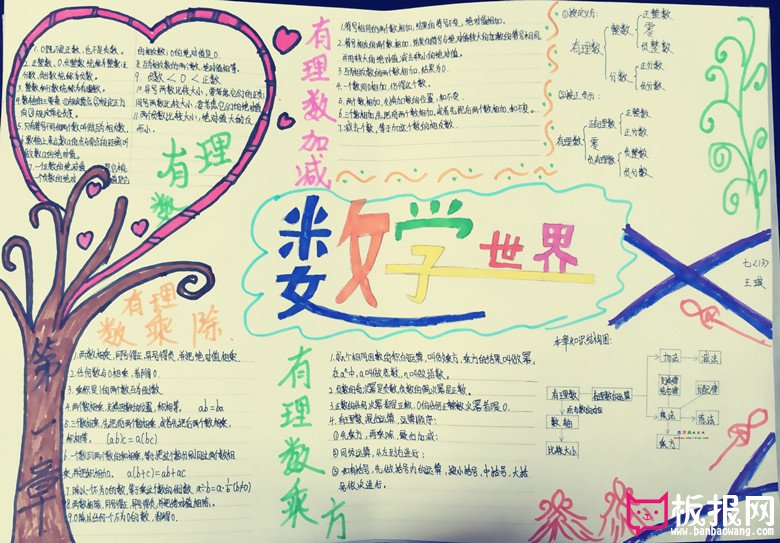 有理数
1. 0既不是正数，也不是负数。
2. 正整数、0、负整数统称为整数，正分数、负分数统称为分数。
3. 整数和分数统称为有理数。
5. 只有符号不同的两个数叫做互为相反数。
的相反数，0的绝对值是0。
8. 互为相反数的两个数，绝对值相等。
9. 负数<0<正数
有理数加减
1. 符号相同的两个数相加，结果的符号不变，绝对值相加。
3. 互为相反数的两个数相加，结果为0。
4. 一个数同0相加，仍得这个数。
5. 两个数相加，交换加数的位置，和不变。
6. 三个数相加，先把前两个数相加，或者先把后两个数相加，和不变。
7. 减去一个数，等于加这个数的相反数。
①按定义分：
有理数
整数
正整数
零
负整数
分数
正分数
负分数
有理数
正有理数
正整数
正分数
零
负有理数
负整数
负分数
数学世界
七(13)
王璇
第一章
有理数乘除
1. 两数相乘，同号得正，异号得负，并把绝对值相乘。
2. 任何数与0相乘，都得0。
3. 乘积是1的两个数互为倒数。
4. 两个数相乘，交换因数的位置，积相等。 ab=ba
5. 三个数相乘，先把前两个数相乘，或者先把后两个数相乘，
积相等。 (ab)c=a(bc)
a(b+c)=ab+ac
7. 除以一个不为0的数，等于乘这个数的倒数 a÷b=a·1/b(b≠0)
8. 两数相除，同号得正，异号得负，并把绝对值相除。
9. 0除以任何一个不为0的数，都得0。
有理数乘方
在aⁿ中，a叫做底数，n叫做指数。
2. 负数的奇次幂是负数，负数的偶次幂是正数。
3. 正数的任何次幂都是正数，0的任何正整数次幂都是0。
①先乘方，再乘除，最后加减；
②同级运算，从左到右进行；
③如有括号，先做括号内的运算，按小括号、中括号、大括
号依次进行。
本章知识结构图：
有理数
有理数的运算
数轴
比较大小
加法
减法
交换律
结合律
分配律
乘法
除法
乘方
板报网
www.banbaowang.com